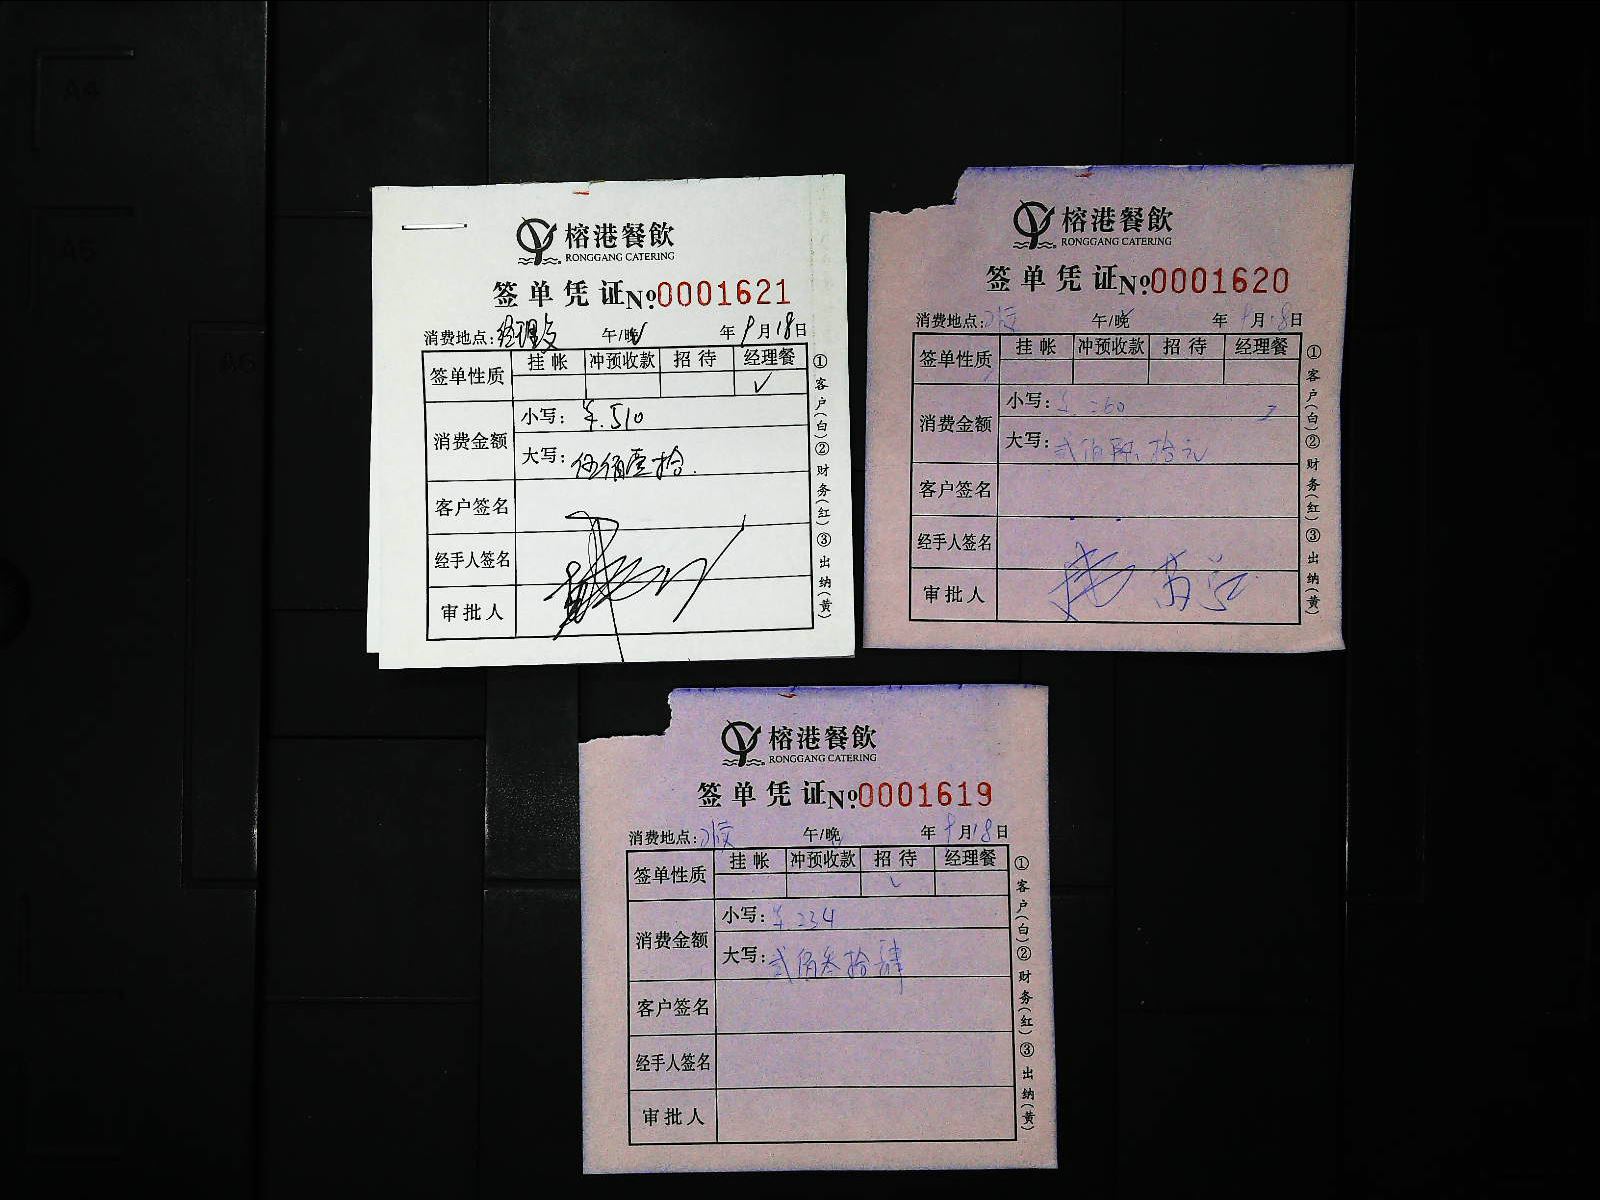 榕港餐飲
RONGGANG CATERING
签单凭证 №0001621
消费地点: 午/晚 年 9月18日
签单性质 挂帐 冲预收款 招待 经理餐
✓
消费金额
小写: ¥.510
大写: 伍佰壹拾.
客户签名
经手人签名
审批人
①客户(白)②财务(红)③出纳(黄)
榕港餐飲
RONGGANG CATERING
签单凭证 №0001620
消费地点: 午/晚 年 9月18日
签单性质 挂帐 冲预收款 招待 经理餐
消费金额
小写: ¥.260
大写: 贰佰陆拾元
客户签名
经手人签名
审批人
①客户(白)②财务(红)③出纳(黄)
榕港餐飲
RONGGANG CATERING
签单凭证 №0001619
消费地点: 午/晚 年 9月18日
签单性质 挂帐 冲预收款 招待 经理餐
✓
消费金额
小写: ¥.234
大写: 贰佰叁拾肆
客户签名
经手人签名
审批人
①客户(白)②财务(红)③出纳(黄)
A4
A5
A6